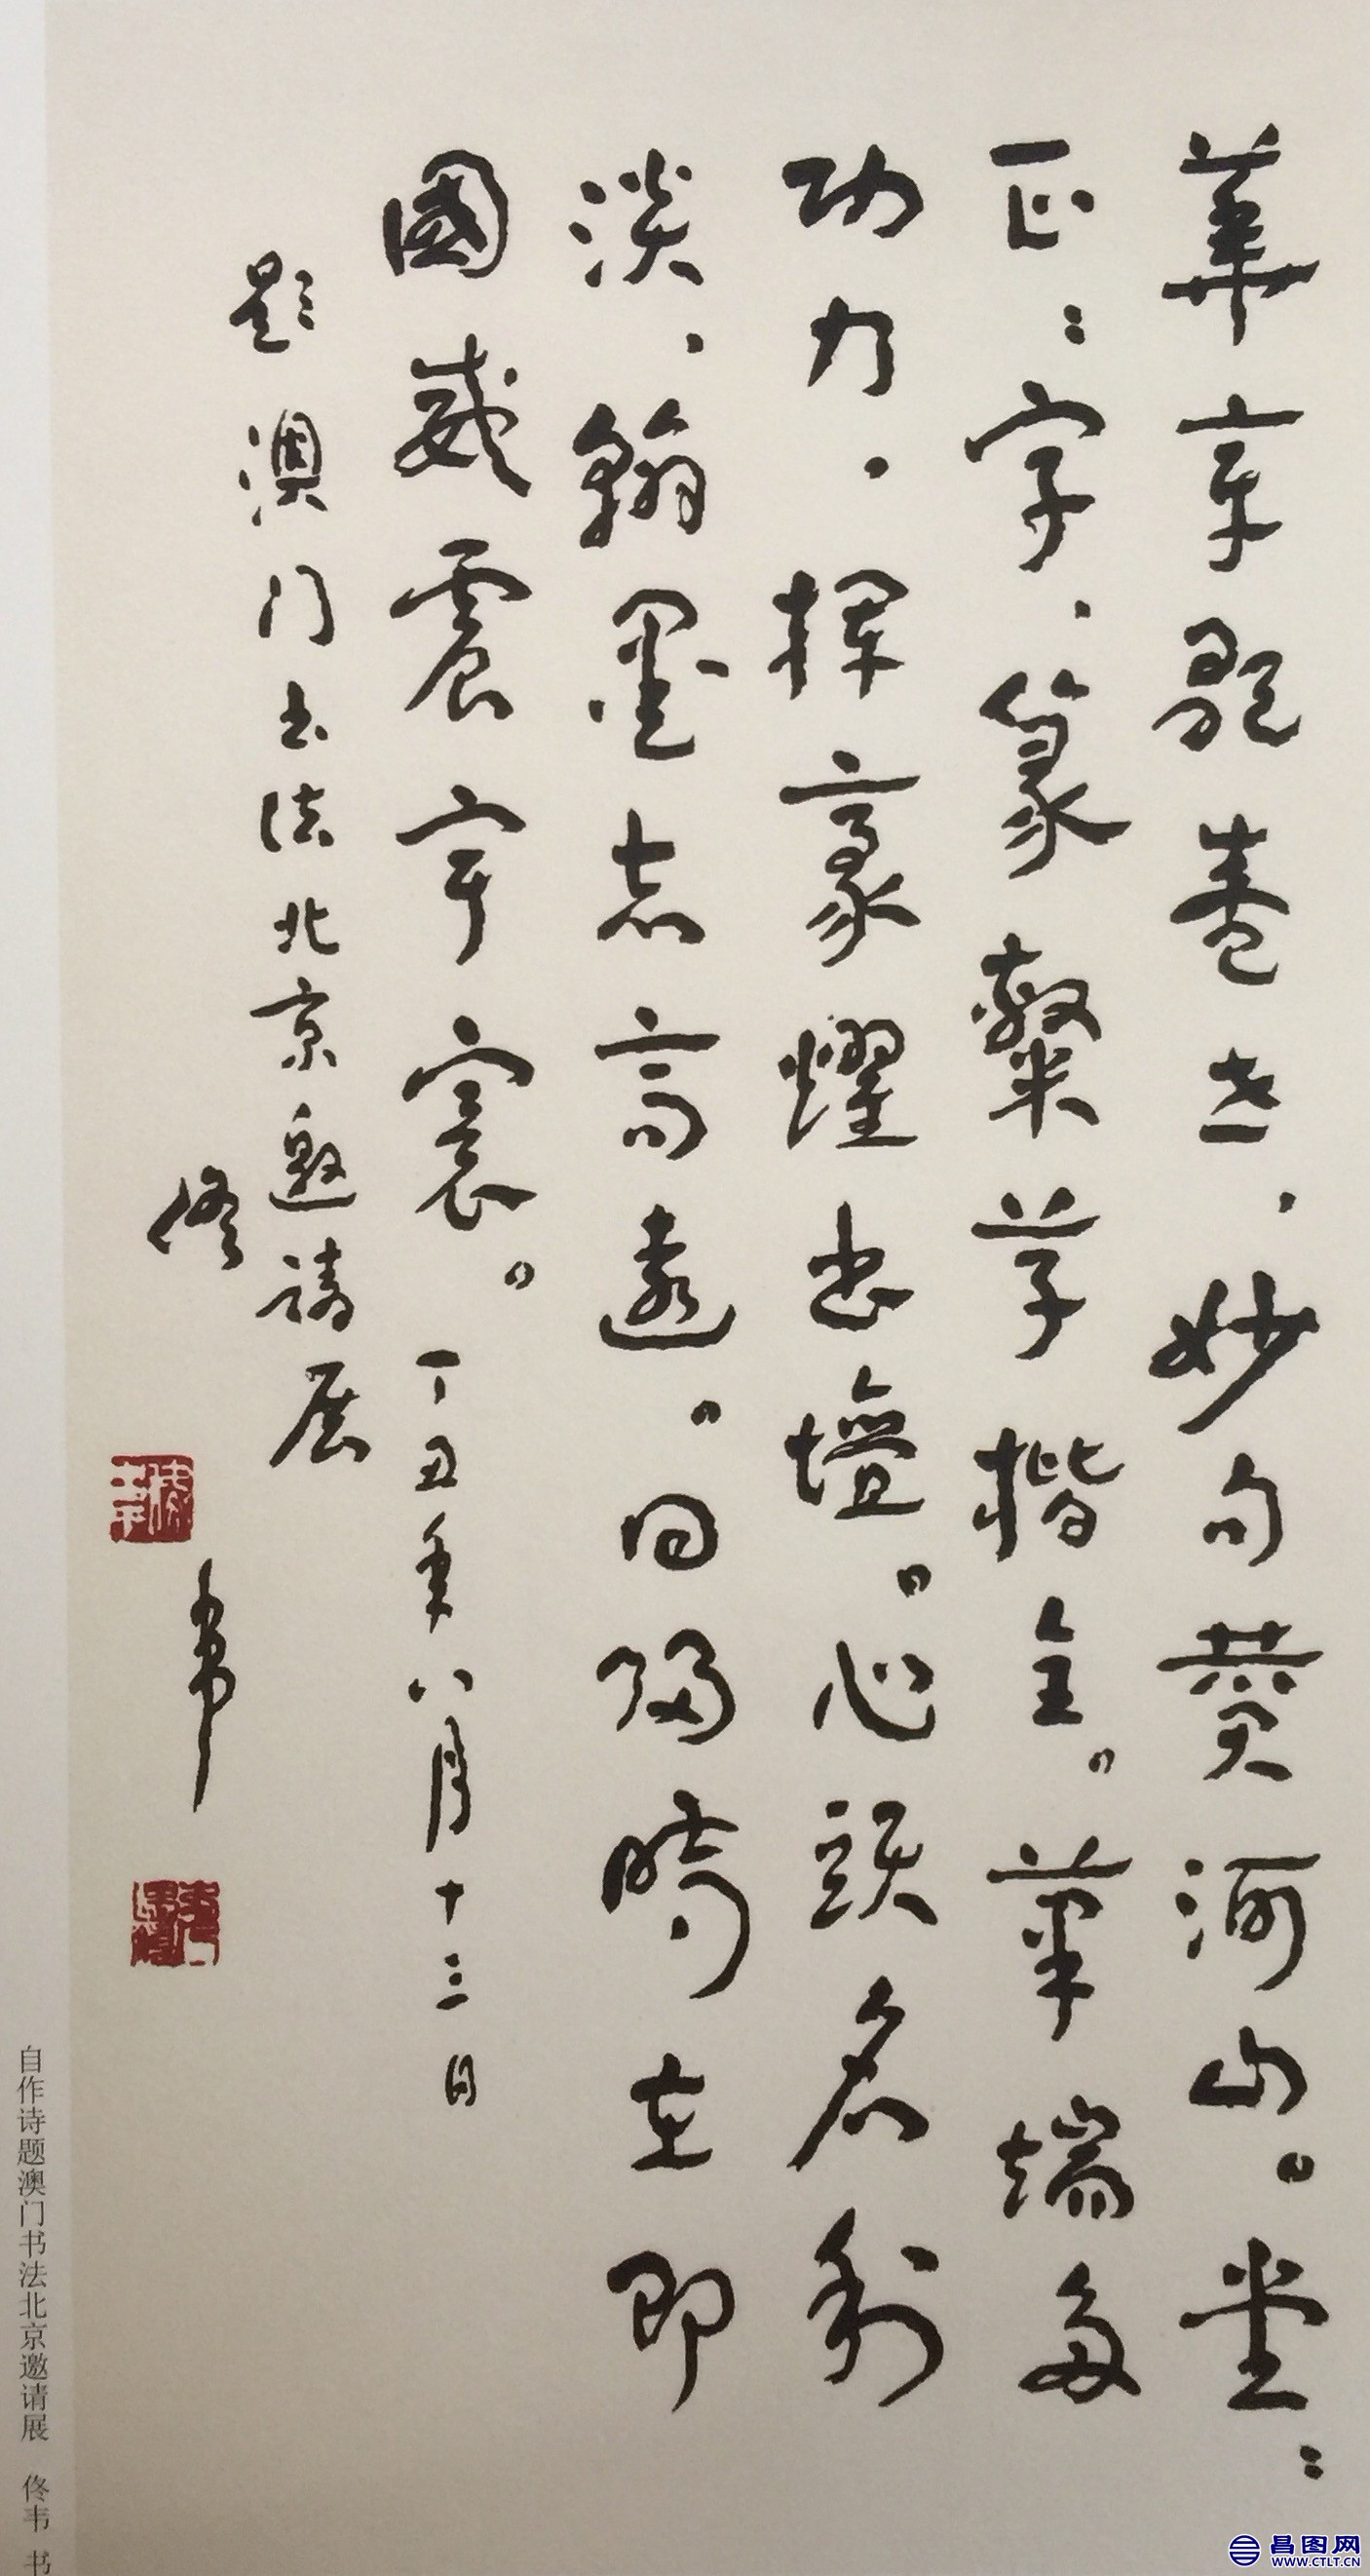 華章歌盛世、妙句贊河山。堂：
正：字、篆隸草楷全。筆端多
功力、揮豪耀书壇。心頭名利
淡、翰墨志高遠。回歸時在即
國威震宇寰。丁丑年八月十三日
題澳门书法北京邀請展
佟韋
自作诗题澳门书法北京邀请展 佟韦 书
昌图网
WWW.CTLT.CN